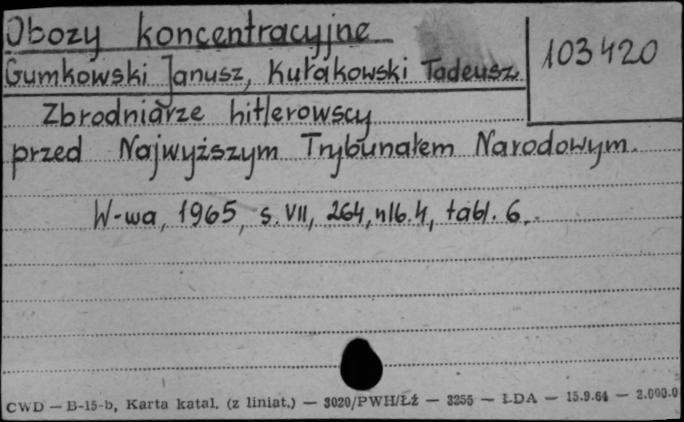 Obozy koncentracyjne
103420
Gumkowski Janusz, Kułakowski Tadeusz.
Zbrodniarze hitlerowscy
przed Najwyższym Trybunałem Narodowym.
W-wa, 1965, s. VII, 264, nlb. 4, tabl. 6.
CWD — B-15-b, Karta katal. (z liniat.) — 3020/PWH/Łź — 3255 — LDA — 15.9.64 — 2.000.0